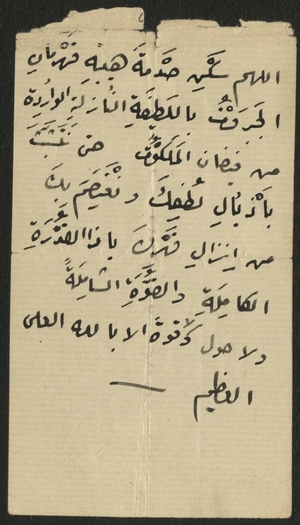 اللهم سَكِّن صَدْمَةَ هَيْبَةِ قَهْرَمَانِ
الجَبَرُوْتِ بِاللَّطِيْفَةِ النَّازِلَةِ الوَارِدَةِ
من فَيَضَانِ المَلَكُوْتِ حتى نَتَشَبَّثَ
بِأَذْيَالِ لُطْفِكَ وَنَعْتَصِمَ بِكَ
من إِنزالِ قَهْرِكَ يا ذا القُدْرَةِ
الكامِلَةِ والقُوَّةِ الشامِلَةِ
ولا حول ولا قوة الا بالله العلى
العظيم